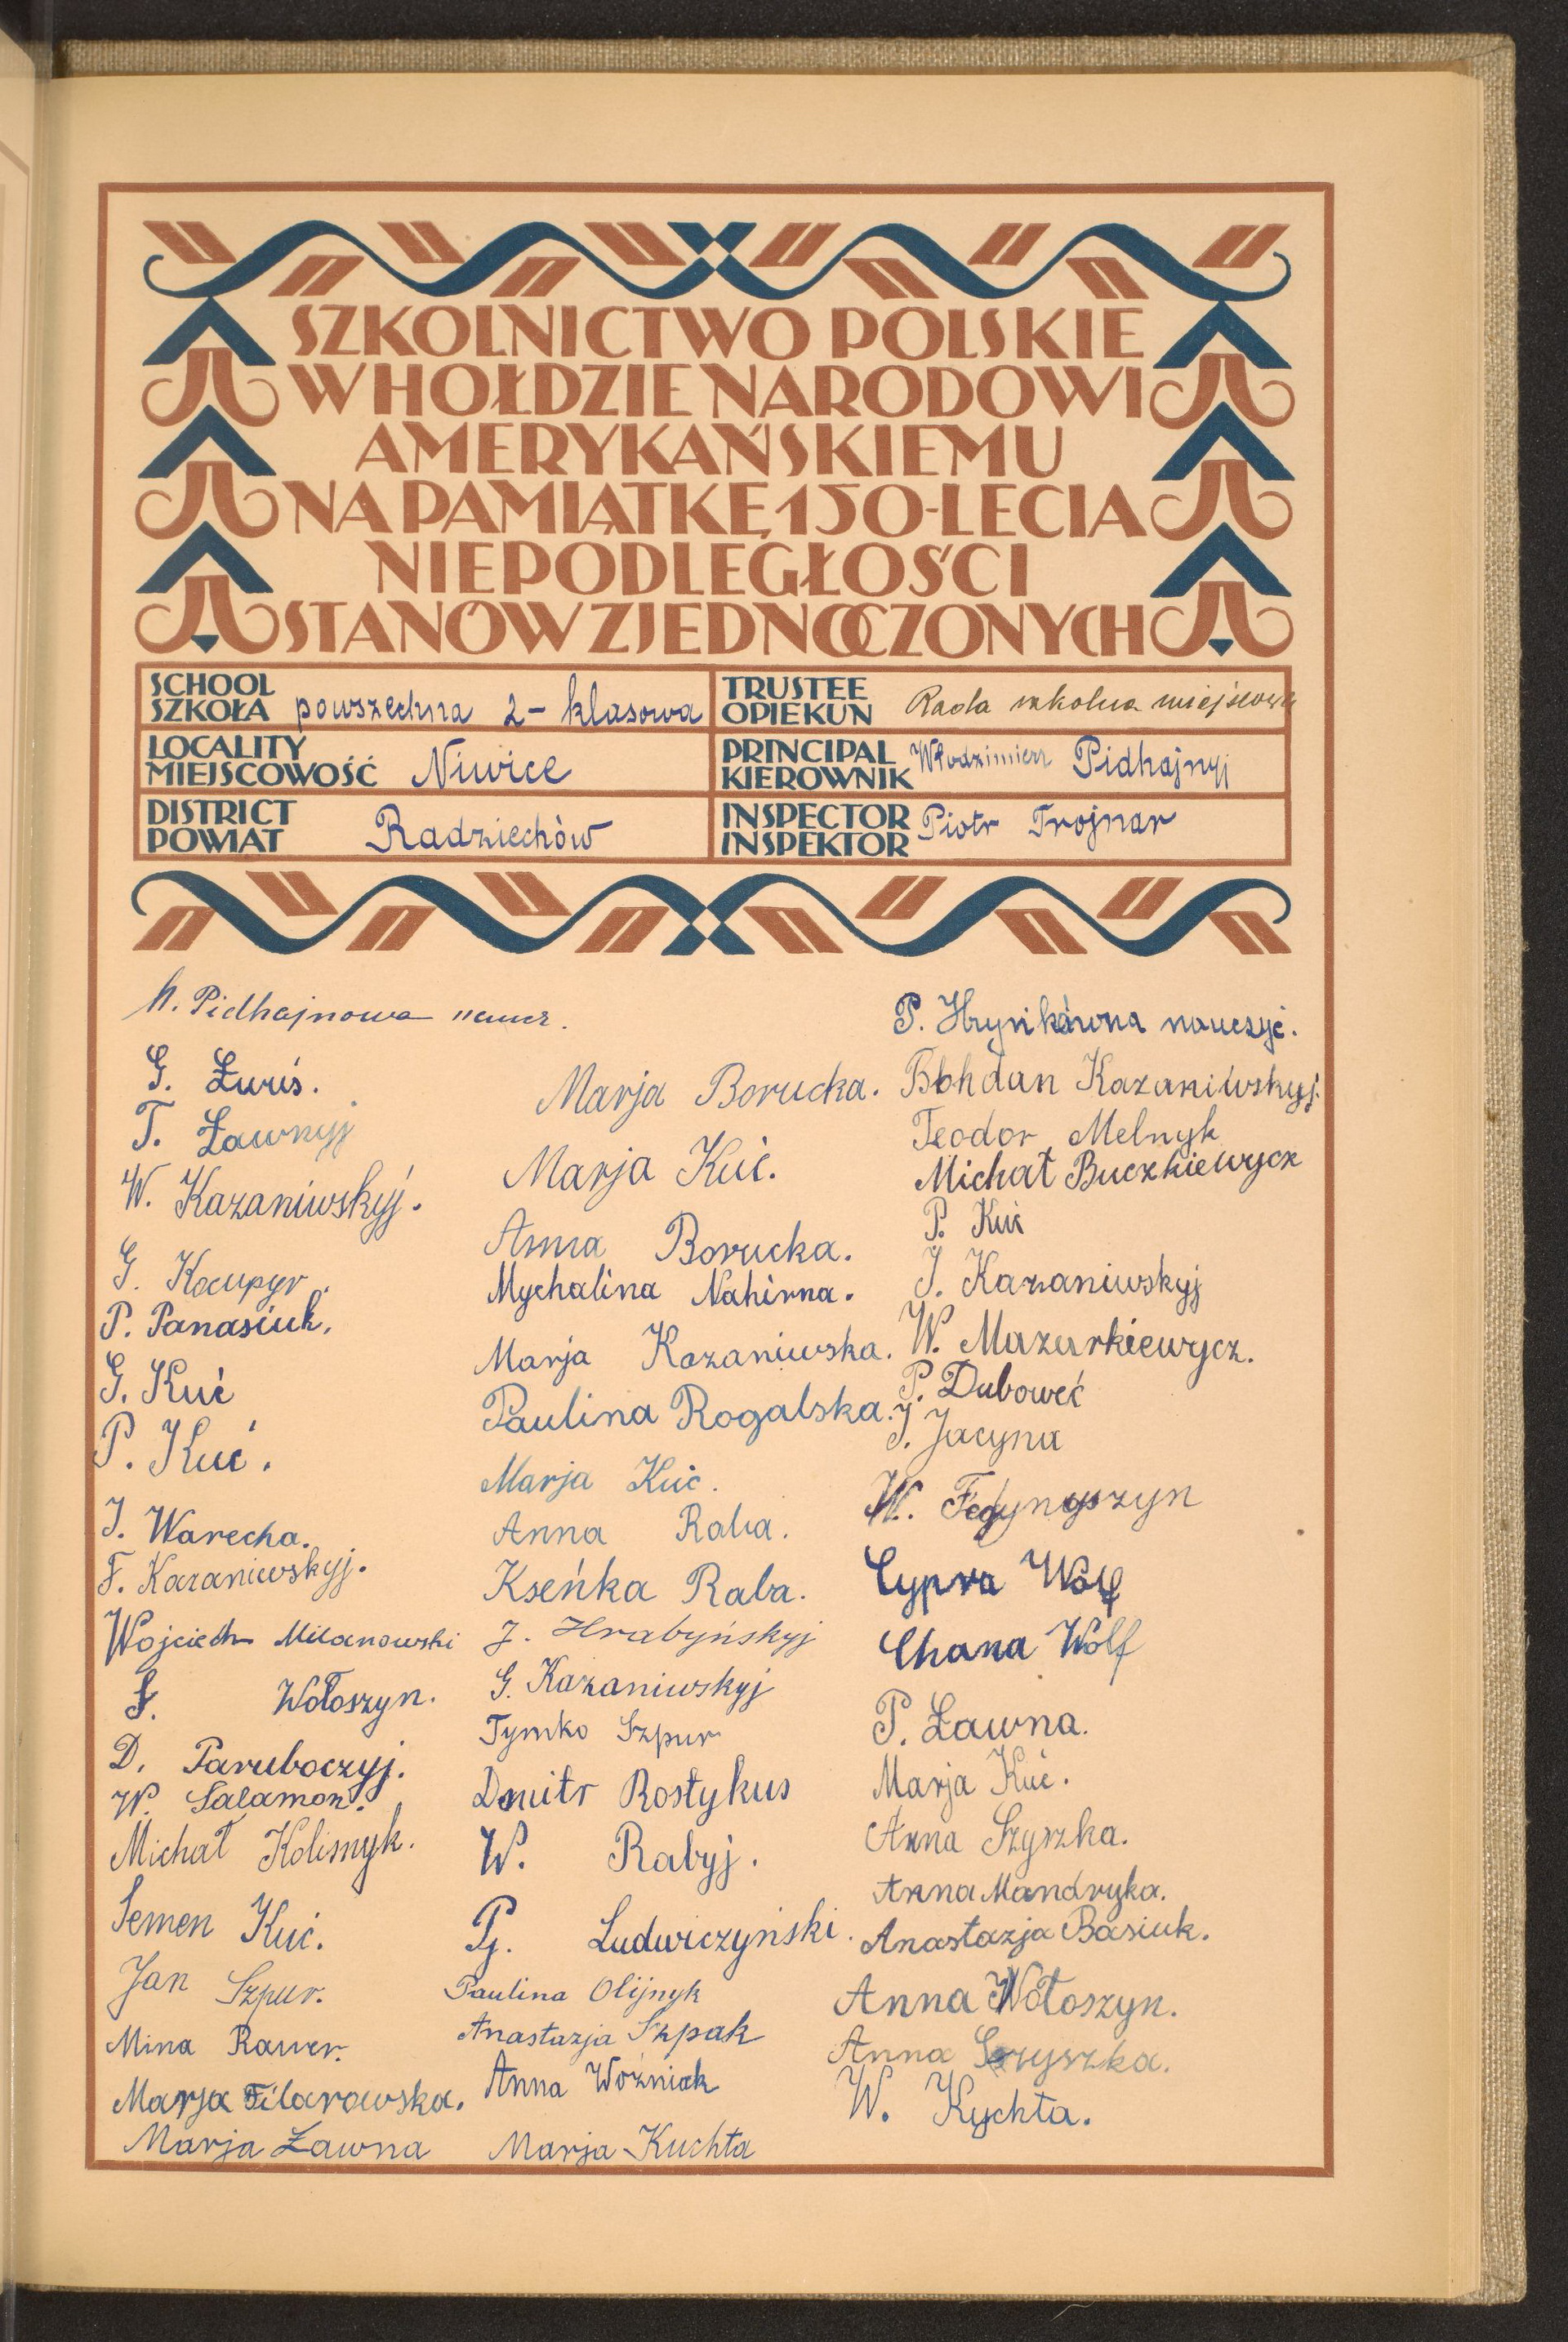 SZKOLNICTWO POLSKIE
W HOŁDZIE NARODOWI
AMERYKAŃSKIEMU
NA PAMIĄTKĘ 150-LECIA
NIEPODLEGŁOŚCI
STANÓW ZJEDNOCZONYCH
SCHOOL
SZKOŁA powszechna 2-klasowa
TRUSTEE
OPIEKUN Rada szkolna miejscowa
LOCALITY
MIEJSCOWOŚĆ Niwice
PRINCIPAL
KIEROWNIK Włodzimierz Pidhajnyj
DISTRICT
POWIAT Radziechów
INSPECTOR
INSPEKTOR Piotr Trojnar
Pidhajnowa naucz.
G. Łuciś.
T. Ławnyj
W. Kazaniwskyj.
G. Kocupyr.
P. Panasiuk.
G. Kuć
P. Kuć.
J. Warecha.
F. Kazaniwskyj.
Wojciech Milanowski
S. Wołoszyn.
D. Paruboczyj.
W. Salamon.
Michał Kolisnyk.
Semen Kuć.
Jan Szpur.
Mina Rawer.
Marja Filarowska.
Marja Ławna
Marja Borucka.
Marja Kuć.
Anna Borucka.
Mychalina Nahirna.
Marja Kozaniwska.
Paulina Rogalska.
Marja Kuć.
Anna Raba.
Kseńka Raba.
J. Hrabyńskyj
G. Kazaniwskyj
Tymko Szpur
Dmitr Rostykus
W. Rabyj.
P. Ludwiczyński.
Paulina Olijnyk
Anastazja Szpak
Anna Woźniak
Marja Kuchta
P. Hrynikówna nauczyc.
Bohdan Kazaniwskyj.
Teodor Melnyk
Michał Buczkiewycz
P. Kuć
J. Kazaniwskyj
W. Mazurkiewycz.
P. Duboweć
J. Jacyna
W. Fedynyszyn
Cypra Wolf
Chana Wolf
P. Ławna.
Marja Kuć.
Anna Szyszka.
Anna Mandryka.
Anastazja Basiuk.
Anna Wołoszyn.
Anna Szyszka.
W. Kychta.